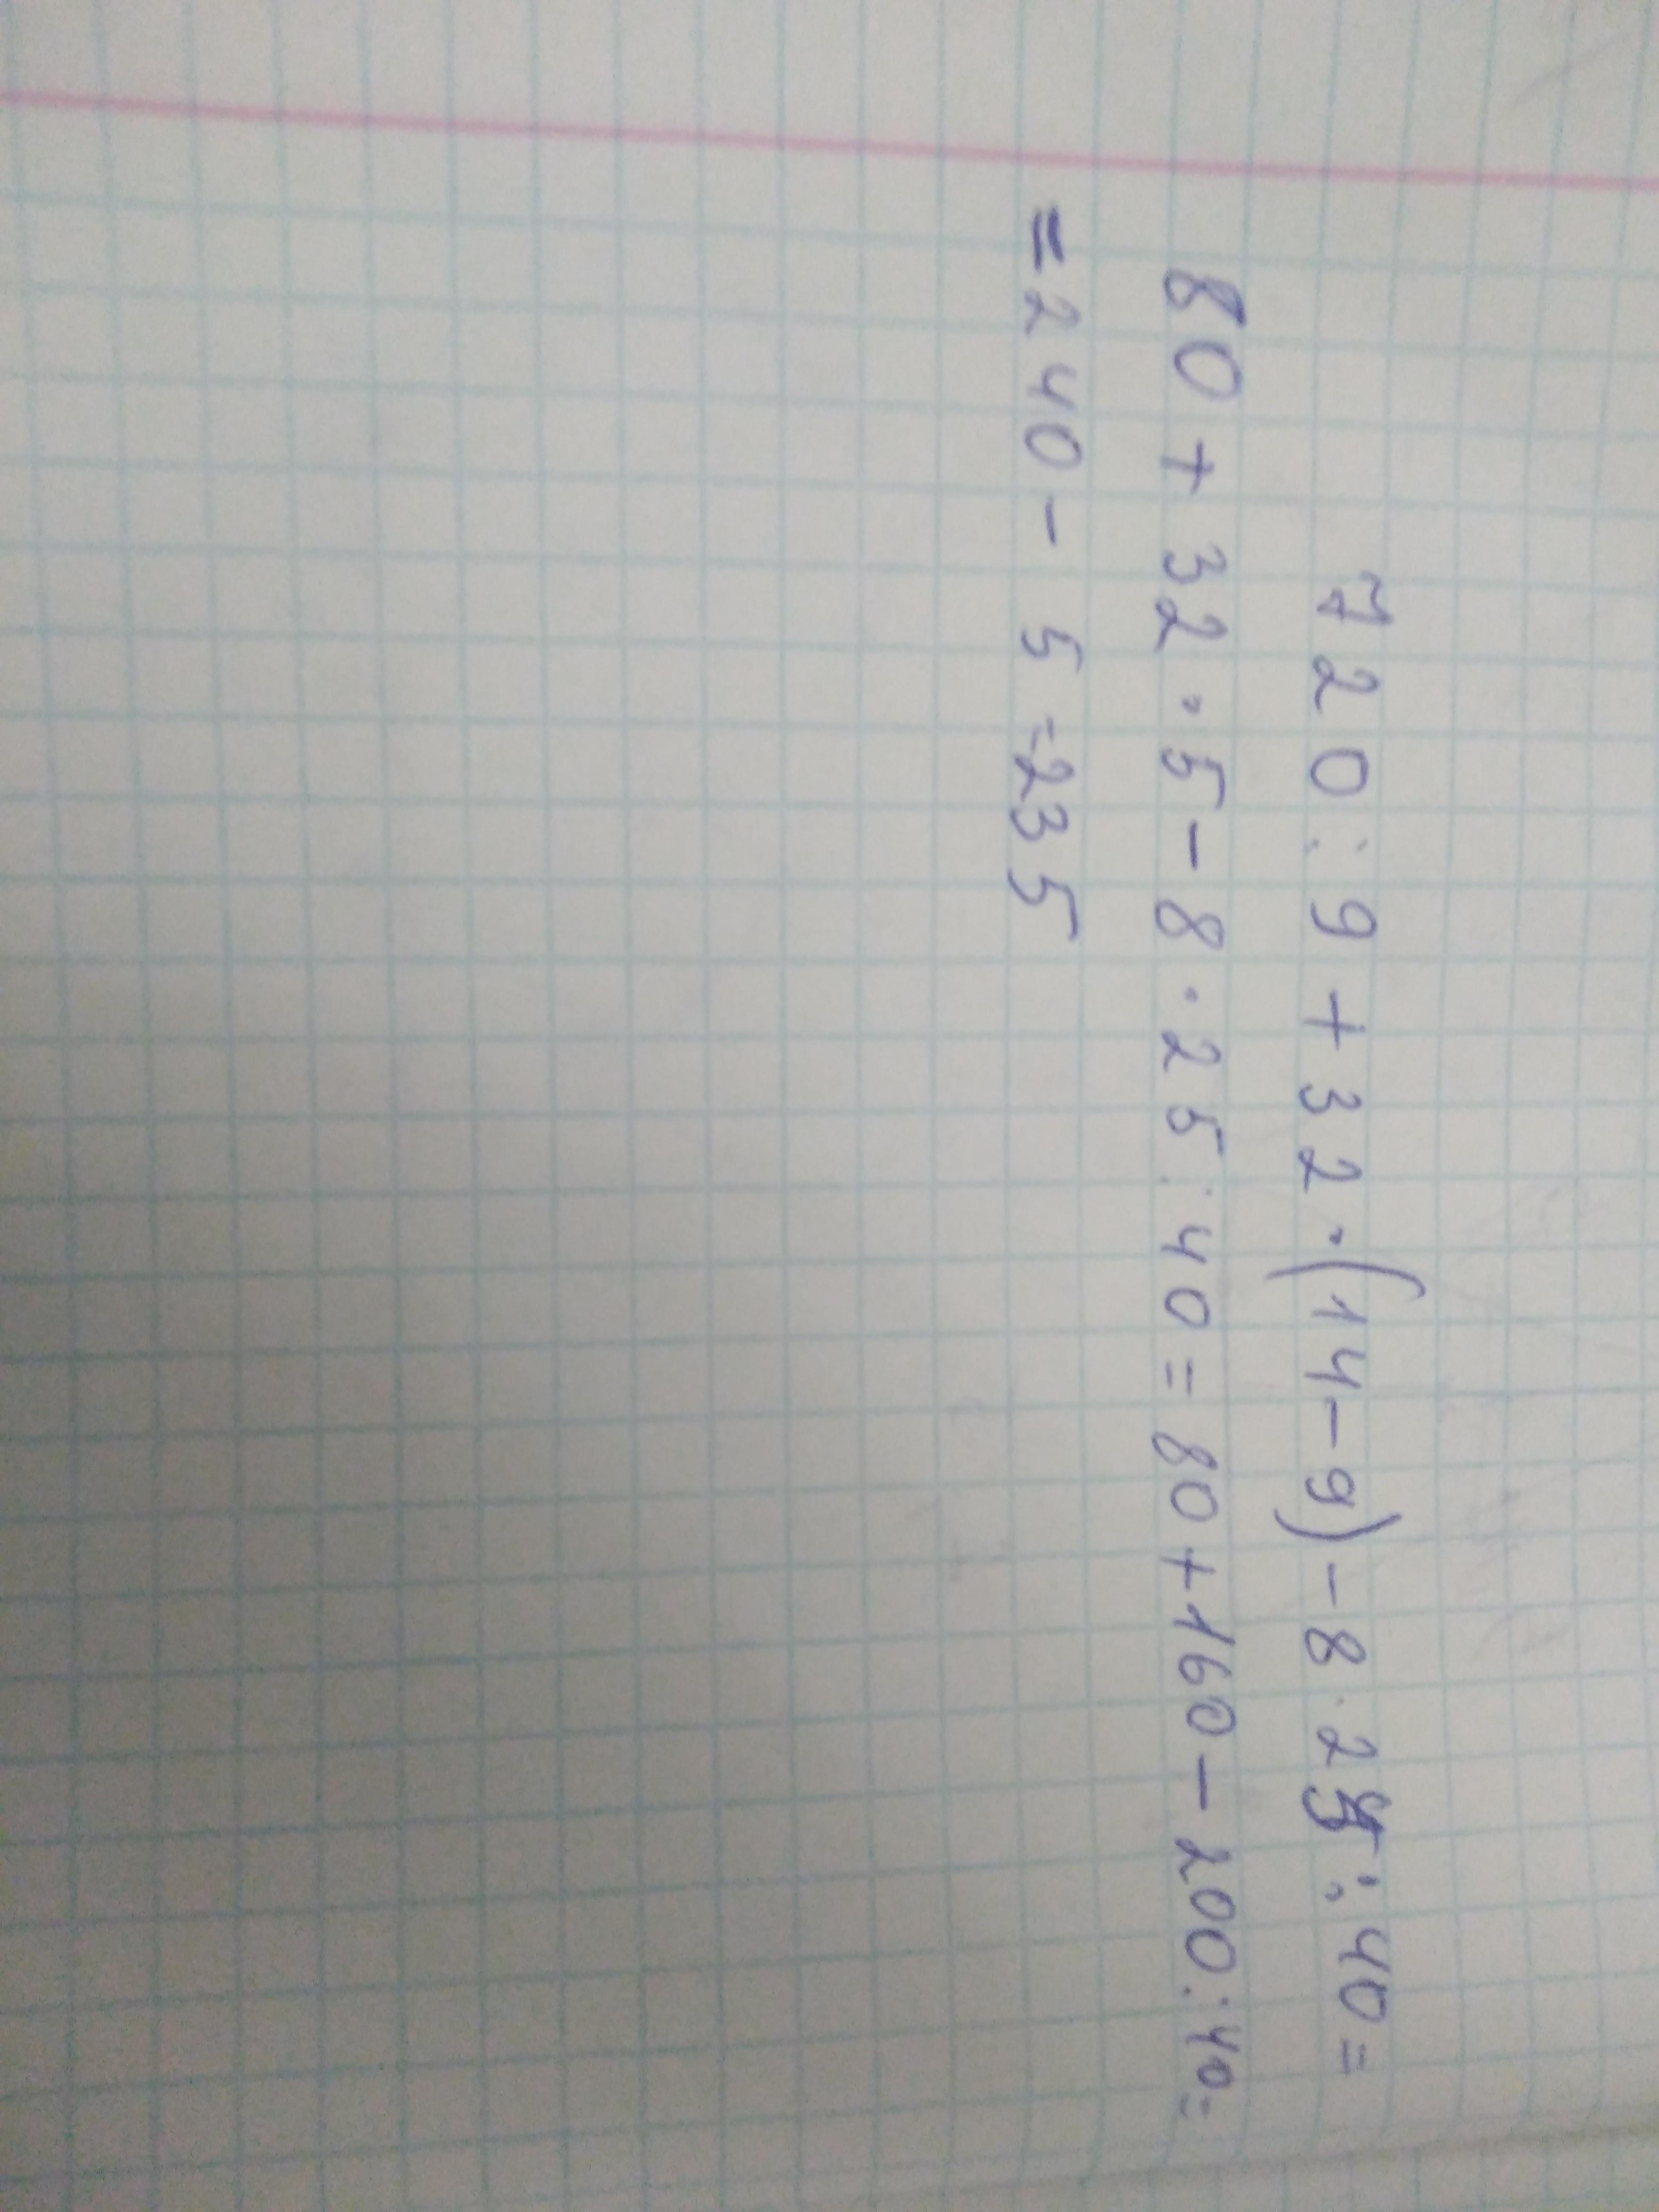 720:9+32·(14-9)-8·25:40=
80+32·5-8·25:40=80+160-200:40=
=240-5=235